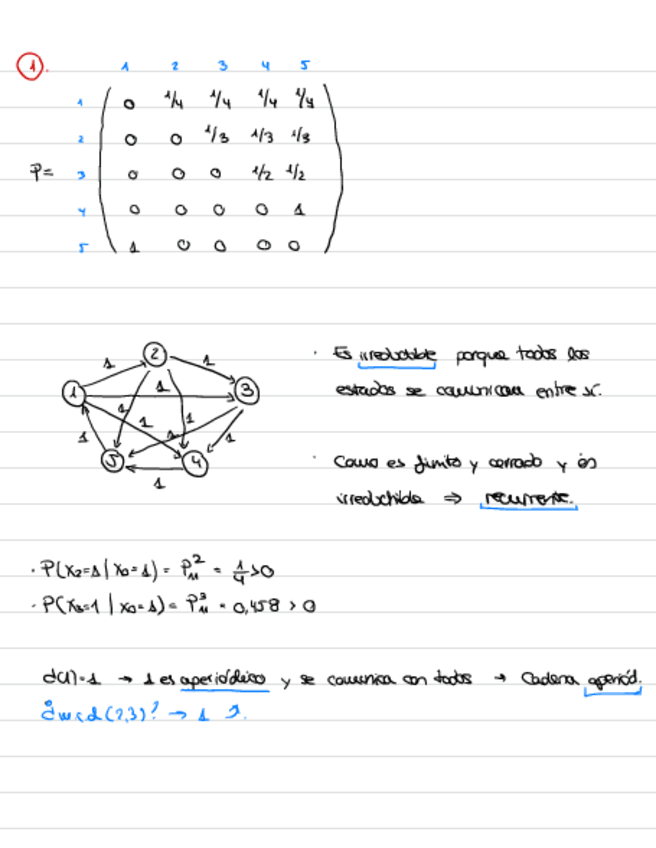 1.
1 2 3 4 5
1 0 1/4 1/4 1/4 1/4
2 0 0 1/3 1/3 1/3
P= 3 0 0 0 1/2 1/2
4 0 0 0 0 1
5 1 0 0 0 0
2
1 1
1 1 3
1 1 1
1 1 1
5 4
1
· Es irreducible porque todos los
estados se comunican entre sí.
· Como es finito y cerrado y es
irreducible ⇒ recurrente.
· P(X2=1 | X0=1) = P11^2 = 1/4 >0
· P(X3=1 | X0=1) = P11^3 = 0,458 > 0
d(1)=1 → 1 es aperiódico y se comunica con todos → Cadena aperiód.
¿mcd(2,3)? → 1